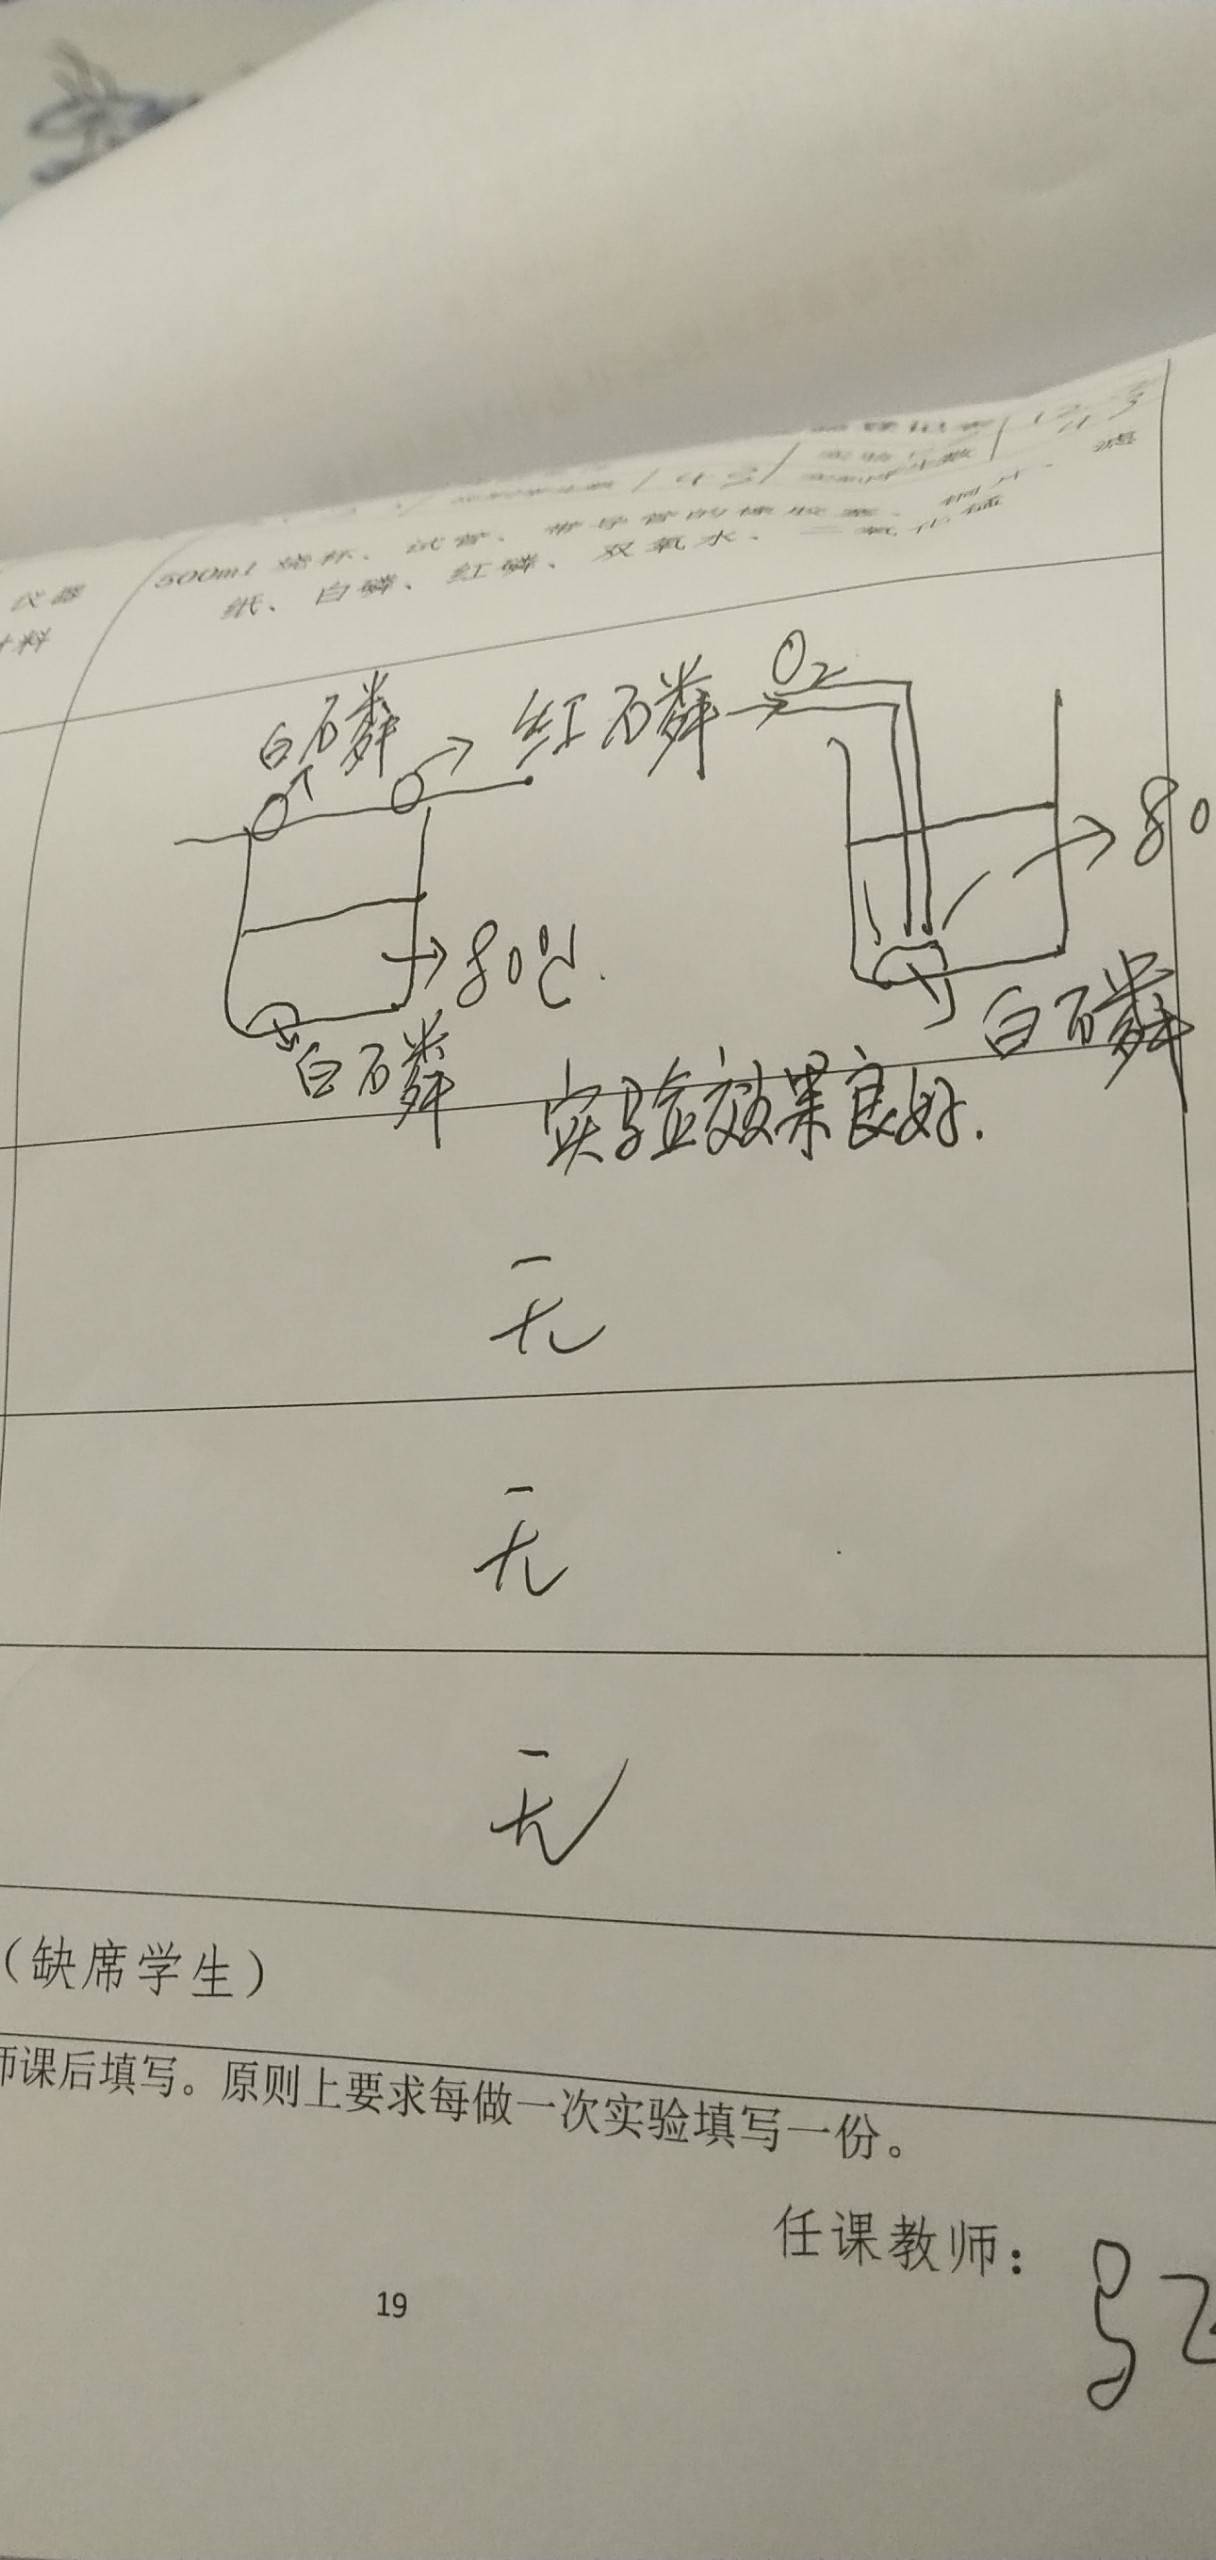 仪器
500ml 烧杯、试管、带导管的橡胶塞、铜片、滤
材料
纸、白磷、红磷、双氧水、二氧化锰
白磷
红磷
O2
80℃
80
白磷
白磷
实验效果良好.
无
无
无
(缺席学生)
师课后填写。原则上要求每做一次实验填写一份。
任课教师:
19